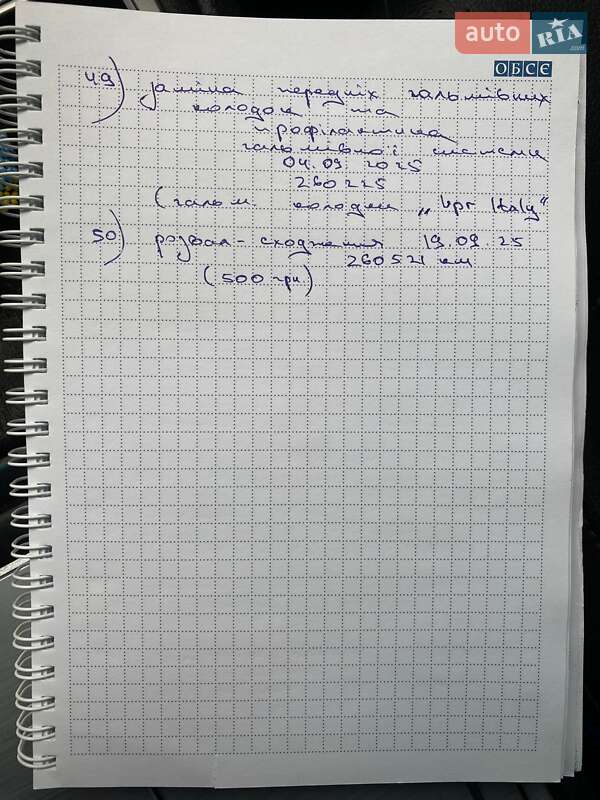 auto RIA.com
ОБСЄ
49) заміна передніх гальмівних
колодок та
профілактика
гальмівної системи
04.09.2025
260225
(гальм. колодки „kpr Italy“
50) розвал-сходження 19.09.25
260521 км
(500 грн.)